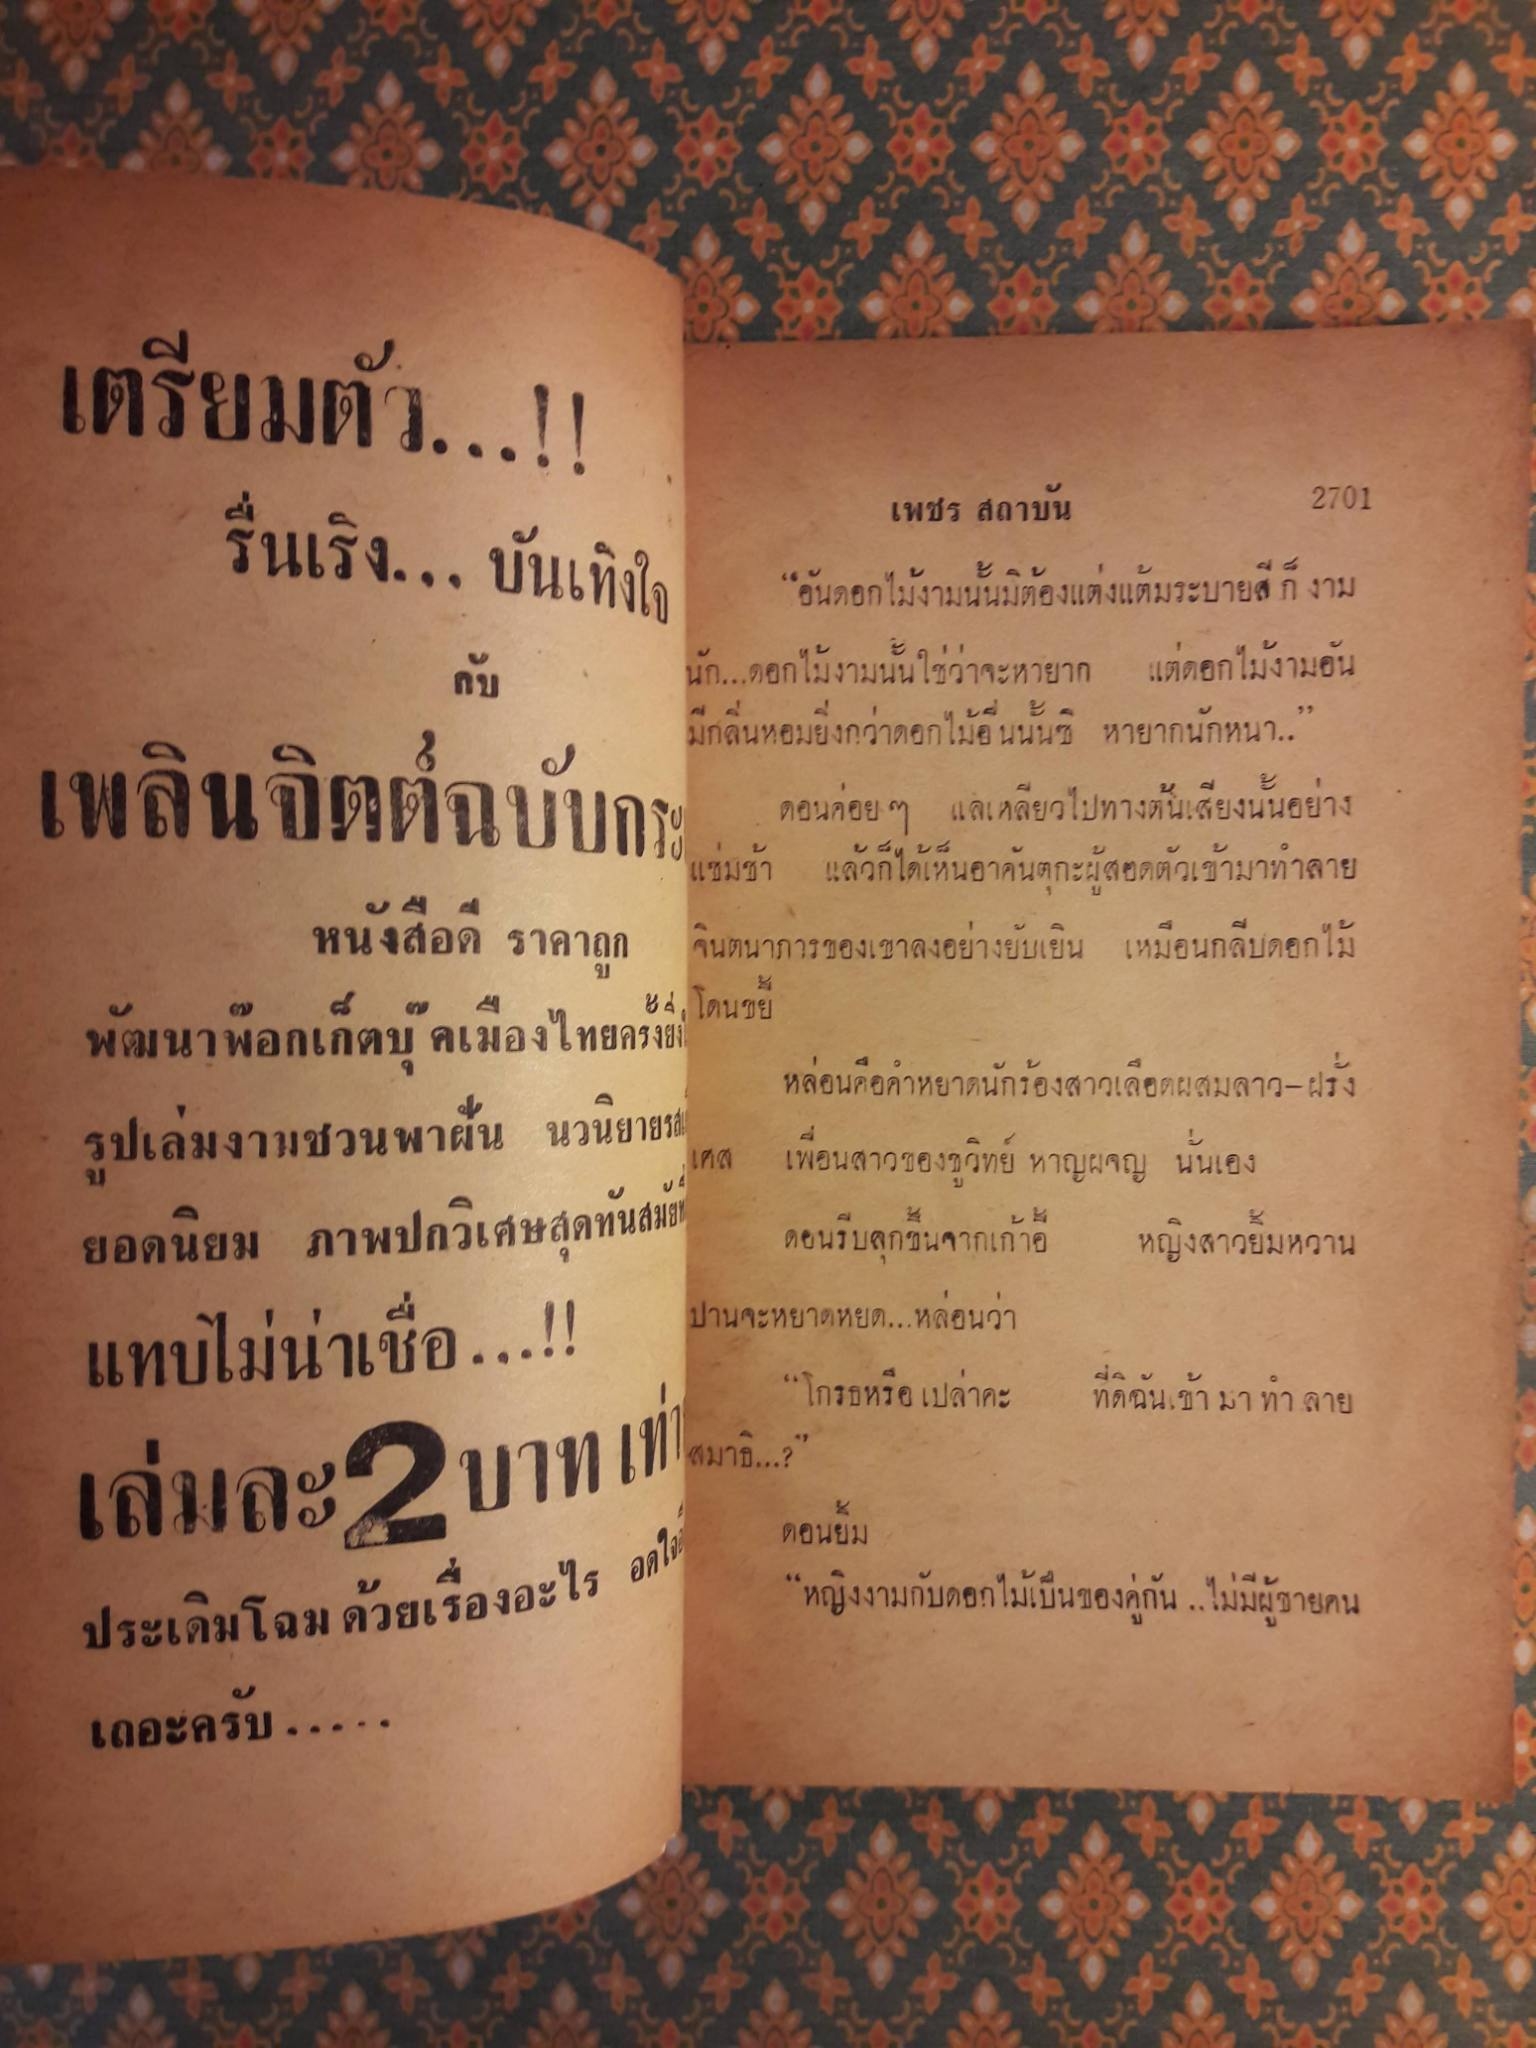 เตรียมตัว...!!
รื่นเริง... บันเทิงใจ
กับ
เพลินจิตต์ฉบับกระ
หนังสือดี ราคาถูก
พัฒนาพ๊อกเก็ตบุ๊คเมืองไทยครั้งยิ่ง
รูปเล่มงามชวนพาฝัน นวนิยายรส
ยอดนิยม ภาพปกวิเศษสุดทันสมัย
แทบไม่น่าเชื่อ...!!
เล่มละ 2 บาท เท่า
ประเดิมโฉมด้วยเรื่องอะไร อดใจ
เถอะครับ.....
เพชร สถาบัน 2701
“อันดอกไม้งามนั้นมิต้องแต่งแต้มระบายสี ก็ งาม
นัก...ดอกไม้งามนั้นใช่ว่าจะหายาก แต่ดอกไม้งามอัน
มีกลิ่นหอมยิ่งกว่าดอกไม้อื่นนั้นซิ หายากนักหนา..”
ดอนค่อย ๆ แลเหลียวไปทางต้นเสียงนั้นอย่าง
แช่มช้า แล้วก็ได้เห็นอาคันตุกะผู้สอดตัวเข้ามาทำลาย
จินตนาการของเขาลงอย่างยับเยิน เหมือนกลีบดอกไม้
โดนขยี้
หล่อนคือคำหยาดนักร้องสาวเลือดผสมลาว–ฝรั่ง
เศส เพื่อนสาวของชูวิทย์ หาญผจญ นั่นเอง
ดอนรีบลุกขึ้นจากเก้าอี้ หญิงสาวยิ้มหวาน
ปานจะหยาดหยด...หล่อนว่า
“โกรธหรือเปล่าคะ ที่ดิฉันเข้า มา ทำ ลาย
สมาธิ...?”
ดอนยิ้ม
“หญิงงามกับดอกไม้เป็นของคู่กัน ..ไม่มีผู้ชายคน